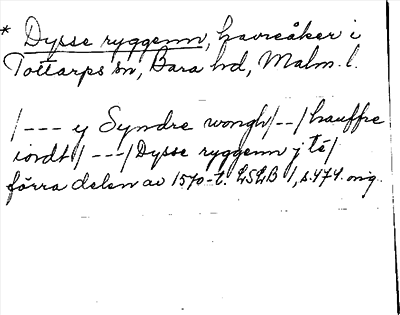 * Dysse ryggenn, havreåker i
Tottarps sn, Bara hd, Malm. l.
/--- y Syndre wongh/--/hauffre
iordt/---/Dysse ryggenn j té/
förra delen av 1570-t. LSLB 1, s. 474. orig.